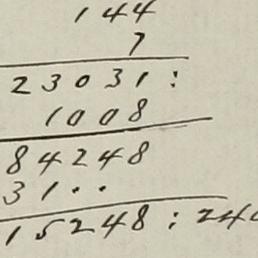 144
7
23031:
1008
84248
31··
15248:24